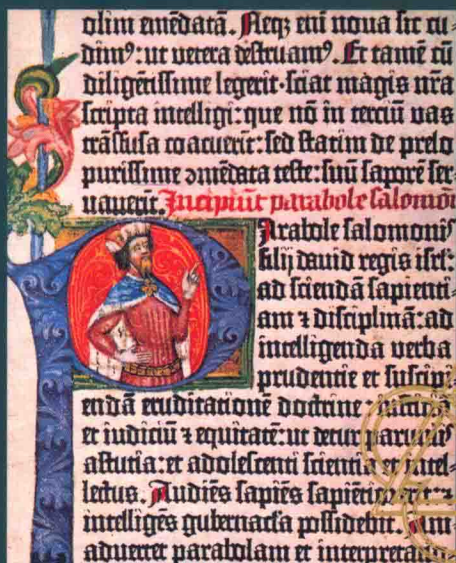 olim emēdatā. Neqȝ eni noua sic cu-
dimꝰ: ut vetera destruamꝰ. Et tamē cū
diligētissime legerit·sciat magis nr̄a
scripta intelligi: que nō in terciū vas
trāsfusa coacuerit: sed statim de prelo
purissime ꝯmēdata teste: suū saporē ser-
uauerit. Incipiūt parabole salomon
Parabole salomonis
filij dauid regis isrl̄:
ad sciendā sapienti-
am ⁊ disciplinā: ad
intelligenda verba
prudentie et suscipi-
endā eruditationē doctrine
et iudiciū ⁊ equitatē: ut detur paruulis
astutia: et adolescenti scientia et intel-
lectus. Audiēs sapiēs sapiētior erit: ⁊
intelligēs gubernacła possidebit. Am-
aduertet parabolam et